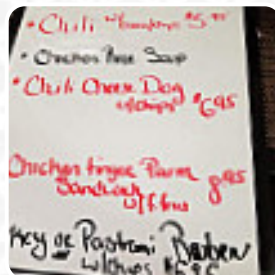 • Chili $5.95
• Chicken Rice Soup
• Chili Cheese Dog
w/chips $6.95
Chicken finger Parm
Sandwich 8.95
w/f.fries
Key or Pastrami Reuben
w/chips